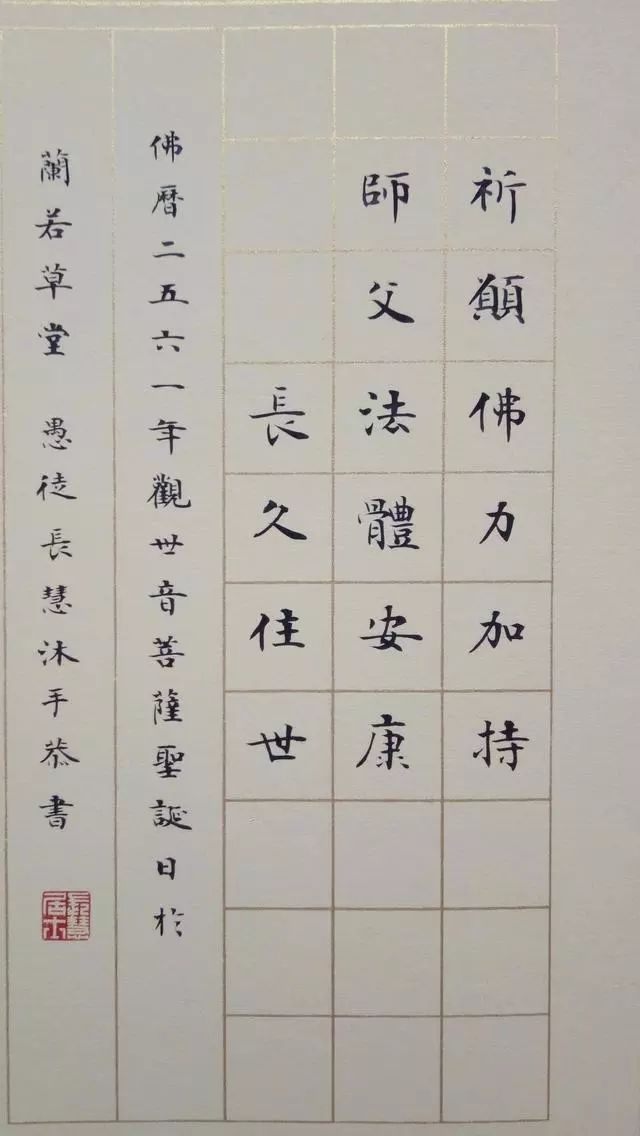 祈願佛力加持
師父法體安康
長久住世
佛曆二五六一年觀世音菩薩聖誕日於
蘭若草堂 愚徒長慧沐手恭書